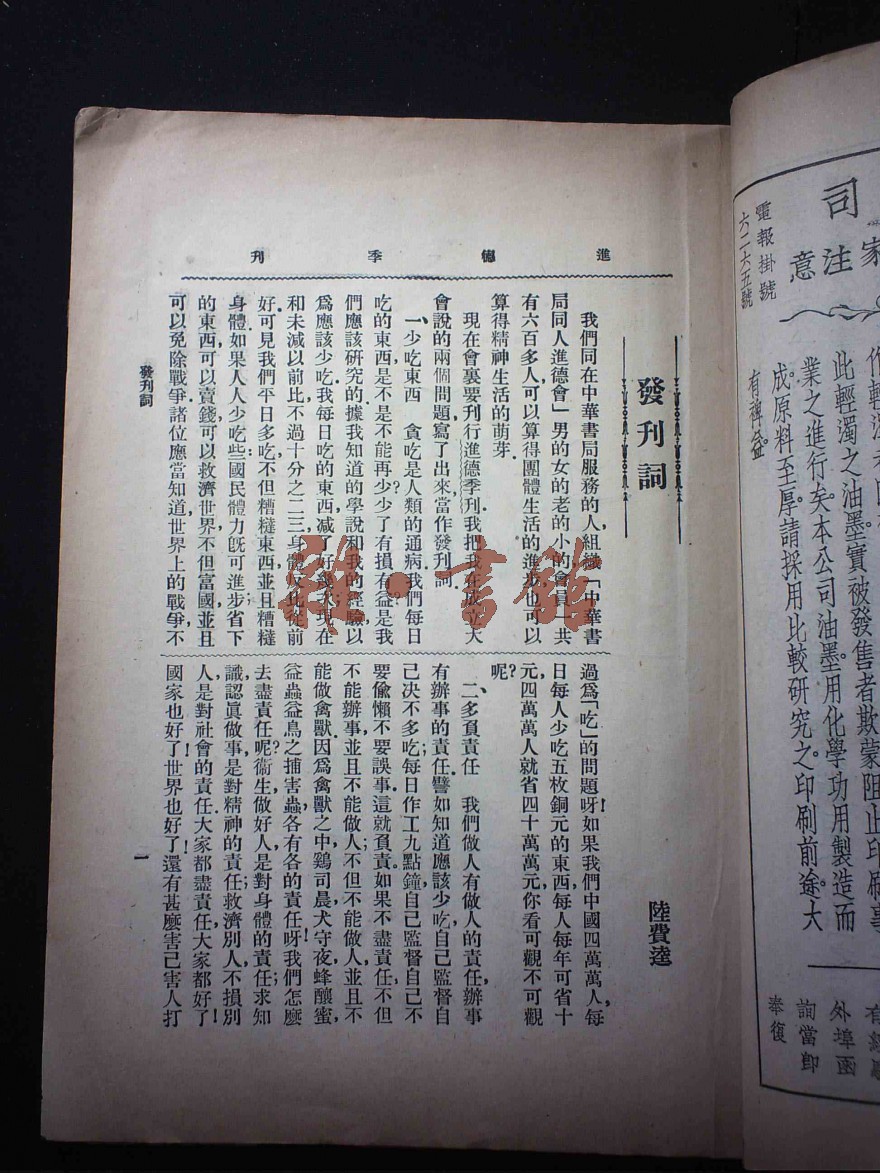 進德季刊
發刊詞
陸費逵
我們同在中華書局服務的人,組織「中華書
局同人進德會」男的女的老的小的會員一共
有六百多人,可以算得團體生活的進步,也可以
算得精神生活的萌芽.
現在會裏要刊行進德季刊,我把我在成立大
會說的兩個問題寫了出來,當作發刊詞.
一、少吃東西 貪吃是人類的通病,我們每日
吃的東西,是不是不能再少?少了有損有益?是我
們應該研究的.據我知道的學說和我的經驗,以
爲應該少吃.我每日吃的東西,減了好幾次,現在
和未減以前比,不過十分之二三,身體反比從前
好.可見我們平日多吃,不但糟蹧東西,並且糟蹧
身體.如果人人少吃些:國民體力旣可進步;省下
的東西,可以賣錢,可以救濟世界.不但富國,並且
可以免除戰爭.諸位應當知道,世界上的戰爭,不
過爲「吃」的問題呀!如果我們中國四萬萬人,每
日每人少吃五枚銅元的東西,每人每年可省十
元,四萬萬人就省四十萬萬元,你看可觀不可觀
呢?
二、多負責任 我們做人有做人的責任,辦事
有辦事的責任.譬如知道應該少吃,自己監督自
己決不多吃;每日作工九點鐘,自己監督自己不
要偸懶,不要誤事.這就負責.如果不盡責任,不但
不能辦事,並且不能做人;不但不能做人,並且不
能做禽獸.因爲禽獸之中,鷄司晨,犬守夜,蜂釀蜜,
益蟲益鳥之捕害蟲,各有各的責任呀!我們怎麼
去盡責任呢?衞生做好人,是對身體的責任;求知
識,認眞做事,是對精神的責任;救濟別人,不損別
人,是對社會的責任.大家都盡責任,大家都好了!
國家也好了!世界也好了!還有甚麼害己害人打
發刊詞
一
司
家注意
電報掛號
六二六五號
此輕濁之油墨實被發售者欺蒙阻止印刷事
業之進行矣。本公司油墨用化學功用製造而
成。原料至厚。請採用比較研究之。印刷前途。大
有裨益。
外埠函
詢當卽
奉復
雜·書館